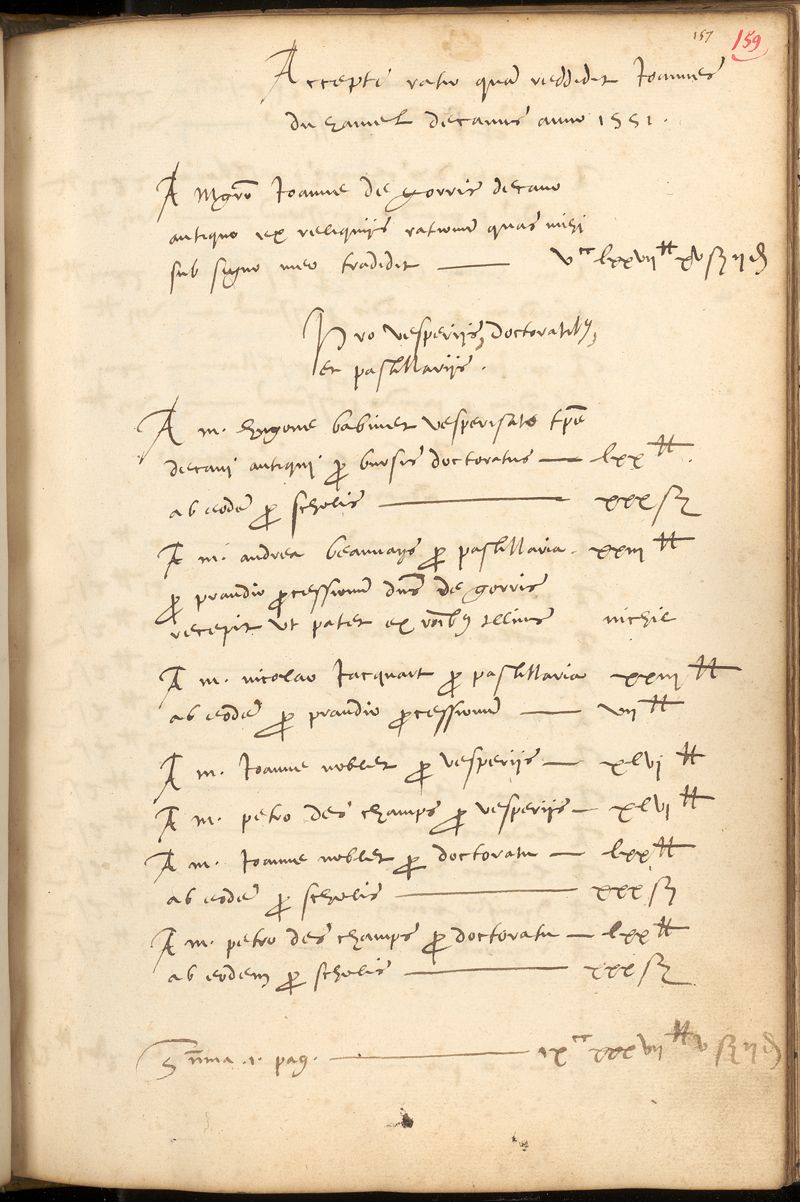 157 159
Accepti ratio quā reddidit Joannes
du hamel decanus anno 1551.
A Mgrō Joanne de gorris decano
antiquo ex reliquijs rationū quas mihi
sub signo meo tradidit — vcc lxxvii ₶ xv ß ii đ
Pro vesperijs, doctoratibꝫ,
et pastillarijs.
A m. hugone babinet vesperisato tpē
decani antiqui ꝓ bursis doctoratus — lxx ₶.
ab eodē ꝓ scholis — xxx ß
A m. andrea beauvays ꝓ pastillaria. xxiii ₶
ꝓ prandio ꝓcessionū dn̄s de gorris
recepit ut patet ex rōnibꝫ illius nichil
A m. nicolao Jacquart ꝓ pastillaria xxiii ₶
ab eodē ꝓ prandio ꝓcessionū — vii ₶
A m. Joanne noblet ꝓ vesperijs — xlvi ₶
A m. petro des champs ꝓ vesperijs — xlvi ₶
A m. Joanne noblet ꝓ doctoratu — lxx ₶
ab eodē ꝓ scholis — xxx ß
A m. petro des champs ꝓ doctoratu — lxx ₶
ab eodem ꝓ scholis — xxx ß
Sūma .1. pag. — ixcc xxxvii ₶ v ß ii đ